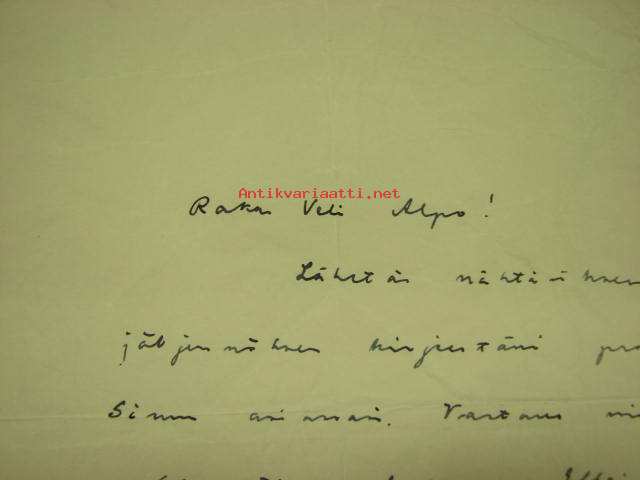 Antikvariaatti.net
Rakas Veli Alpo!
Lähetän nähtä
jäljennöksen kirjeestäni pro
Sinun asiassasi. Vastaus